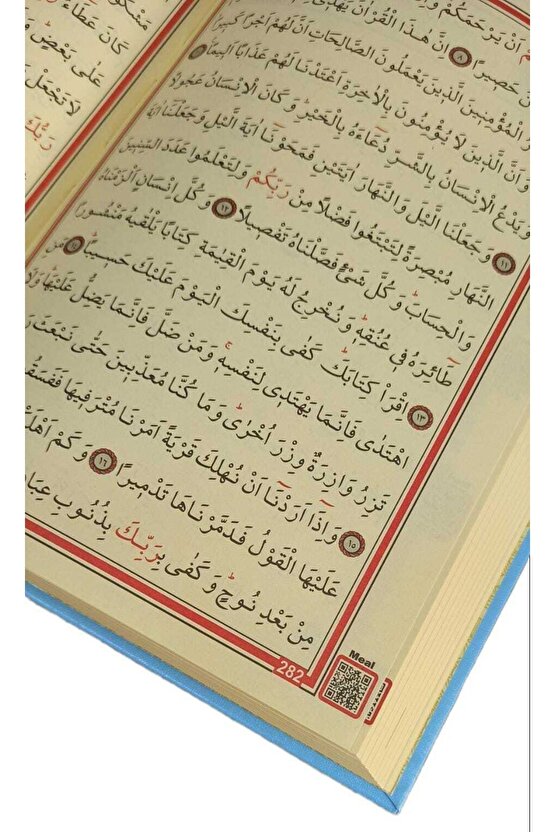 اَنْ يَرْحَمَكُمْ
حَصِيرًا ٨ اِنَّ هٰذَا الْقُرْاٰنَ يَهْدِى
الْمُؤْمِنِينَ الَّذِينَ يَعْمَلُونَ الصَّالِحَاتِ اَنَّ لَهُمْ اَجْرًا كَبِيرًا
وَاَنَّ الَّذِينَ لَا يُؤْمِنُونَ بِالْاٰخِرَةِ اَعْتَدْنَا لَهُمْ عَذَابًا اَلِيمًا ١٠
وَيَدْعُ الْاِنْسَانُ بِالشَّرِّ دُعَٓاءَهُ بِالْخَيْرِؕ وَكَانَ الْاِنْسَانُ عَجُولًا
١١ وَجَعَلْنَا الَّيْلَ وَالنَّهَارَ اٰيَتَيْنِ فَمَحَوْنَٓا اٰيَةَ الَّيْلِ وَجَعَلْنَٓا اٰيَةَ
النَّهَارِ مُبْصِرَةً لِتَبْتَغُوا فَضْلًا مِنْ رَبِّكُمْ وَلِتَعْلَمُوا عَدَدَ السِّنِينَ
وَالْحِسَابَؕ وَكُلَّ شَىْءٍ فَصَّلْنَاهُ تَفْصِيلًا ١٢ وَكُلَّ اِنْسَانٍ اَلْزَمْنَاهُ
طَٓائِرَهُ فِى عُنُقِهِؕ وَنُخْرِجُ لَهُ يَوْمَ الْقِيٰمَةِ كِتَابًا يَلْقٰيهُ مَنْشُورًا
١٣ اِقْرَاْ كِتَابَكَؕ كَفٰى بِنَفْسِكَ الْيَوْمَ عَلَيْكَ حَسِيبًاؕ ١٤ مَنِ
اهْتَدٰى فَاِنَّمَا يَهْتَدِى لِنَفْسِهِۚ وَمَنْ ضَلَّ فَاِنَّمَا يَضِلُّ عَلَيْهَاؕ وَلَا
تَزِرُ وَازِرَةٌ وِزْرَ اُخْرٰىؕ وَمَا كُنَّا مُعَذِّبِينَ حَتّٰى نَبْعَثَ
١٥ وَاِذَٓا اَرَدْنَٓا اَنْ نُهْلِكَ قَرْيَةً اَمَرْنَا مُتْرَفِيهَا فَفَسَقُ
عَلَيْهَا الْقَوْلُ فَدَمَّرْنَاهَا تَدْمِيرًا ١٦ وَكَمْ اَهْلَ
مِنْ بَعْدِ نُوحٍؕ وَكَفٰى بِرَبِّكَ بِذُنُوبِ عِبَا
282
Meal
كَانَ عَطَٓاءُ
عَلٰى بَعْضٍؕ
لَا تَجْعَلْ
رَبُّكَ